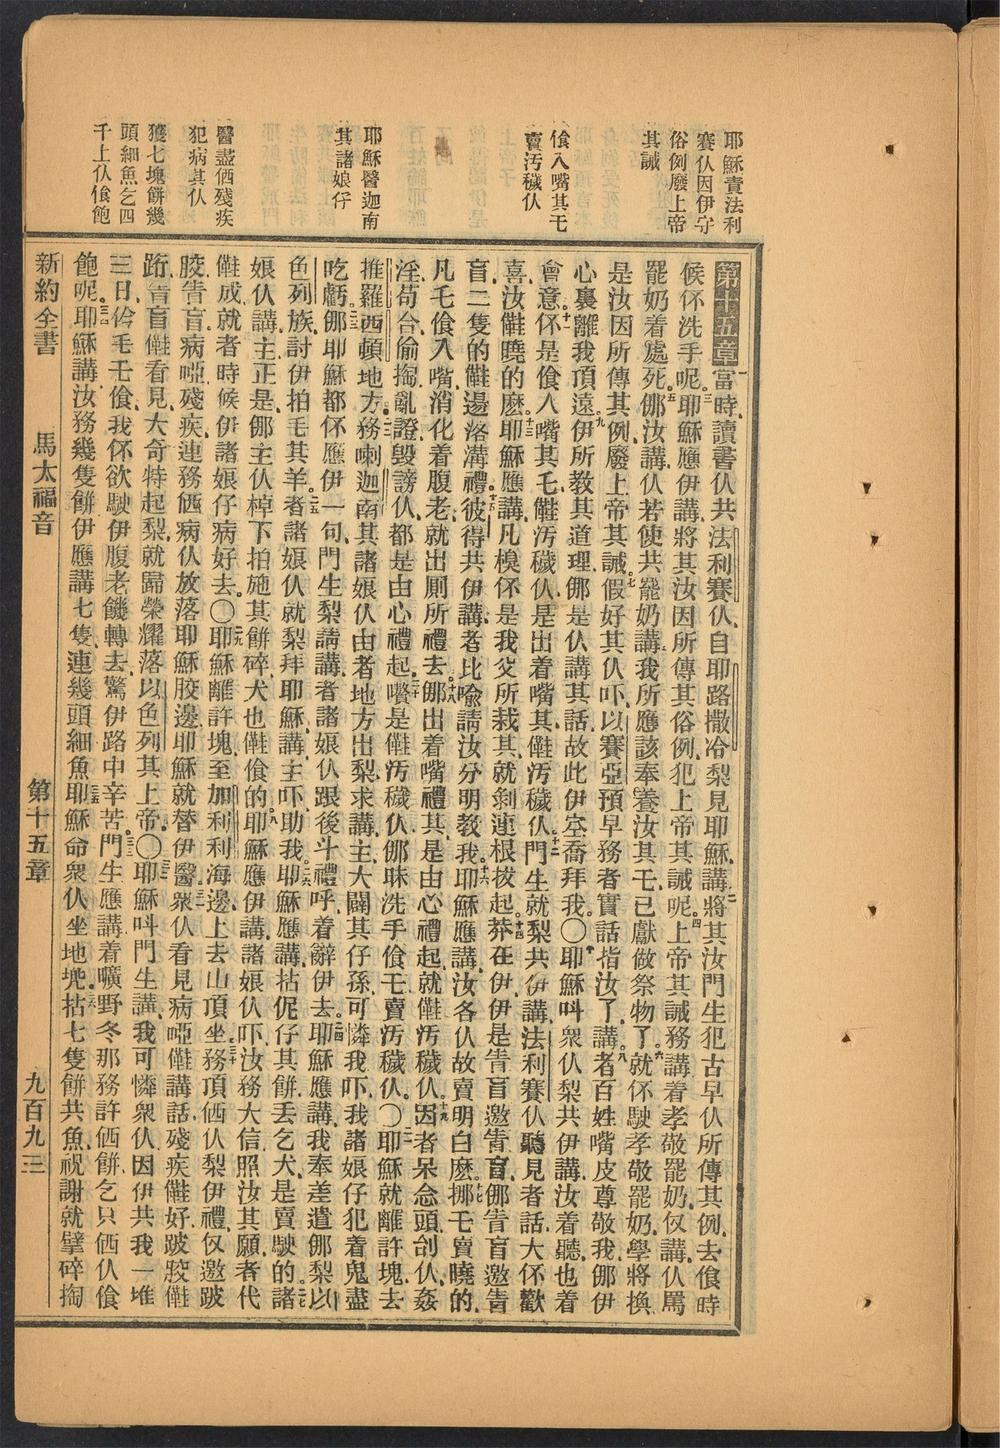 耶穌責法利
賽仈因伊守
俗例廢上帝
其誡
偹入嘴其乇
賣汚穢仈
耶穌醫迦南
其諸娘仔
醫盡伵殘疾
犯病其仈
獲七塊餅幾
頭細魚乞四
千上仈偹飽
第十五章當時讀書仈共法利賽仈自耶路撒冷梨見耶穌講將其汝門生犯古早仈所傳其例去偹時
候伓洗手呢耶穌應伊講將其汝因所傳其俗例犯上帝其誡呢上帝其誡務講着孝敬罷奶仅講仈罵
罷奶着處死㑚汝講仈若使共罷奶講我所應該奉養汝其乇已獻做祭物了就伓駛孝敬罷奶學將換
是汝因所傳其例廢上帝其誡假好其仈吓以賽亞預早務者實話指汝了講者百姓嘴皮尊敬我㑚伊
心裏離我頂遠伊所教其道理㑚是仈講其話故此伊空喬拜我〇耶穌叫衆仈梨共伊講汝着聽也着
會意伓是偹入嘴其乇㒕汚穢仈是出着嘴其㒕汚穢仈門生就梨共伊講法利賽仈聽見者話大伓歡
喜汝㒕曉的麽耶穌應講凡模伓是我父所栽其就剝連根拔起莽在伊伊是青盲邀青盲㑚青盲邀青
盲二隻的㒕邊落溝禮彼得共伊講者比喻請汝分明教我耶穌應講汝各仈故賣明白麽挪乇賣曉的
凡乇偹入嘴消化着腹老就出厠所禮去㑚出着嘴禮其是由心禮起就㒕汚穢仈因者呆念頭刣仈姦
淫苟合偷掏亂證毀謗仈都是由心禮起嚽是㒕汚穢仈㑚昧洗手偹乇賣汚穢仈〇耶穌就離許塊去
推羅西頓地方務喇迦南其諸娘仈由者地方出梨求講主大闢其仔孫可憐我吓我諸娘仔犯着鬼盡
吃虧㑚耶穌都伓應伊一句門生梨請講者諸娘仈跟後斗禮呼着辭伊去耶穌應講我奉差遣㑚梨以
色列族討伊拍乇其羊者諸娘仈就梨拜耶穌講主吓助我耶穌應講拈伲仔其餅丟乞犬是賣駛的諸
娘仈講主正是㑚主仈棹下拍施其餅碎犬也㒕偹的耶穌應伊講諸娘仈吓汝務大信照汝其願者代
㒕成就者時候伊諸娘仔病好去〇耶穌離許塊至加利利海邊上去山頂坐務頂伵仈梨伊禮仅邀跛
骹青盲病啞殘疾連務伵病仈放落耶穌骹邊耶穌就替伊醫衆仈看見病啞㒕講話殘疾㒕好跛骹㒕
跡青盲㒕看見大奇特起梨就歸榮耀落以色列其上帝〇耶穌叫門生講我可憐衆仈因伊共我一堆
三日伶毛乇偹我伓欲駛伊腹老饑轉去驚伊路中辛苦門生應講着曠野冬那務許伵餅乞只伵仈偹
飽呢耶穌講汝務幾隻餅伊應講七隻連幾頭細魚耶穌命衆仈坐地兜拈七隻餅共魚祝謝就擘碎掏
新約全書　馬太福音　第十五章　九百九三